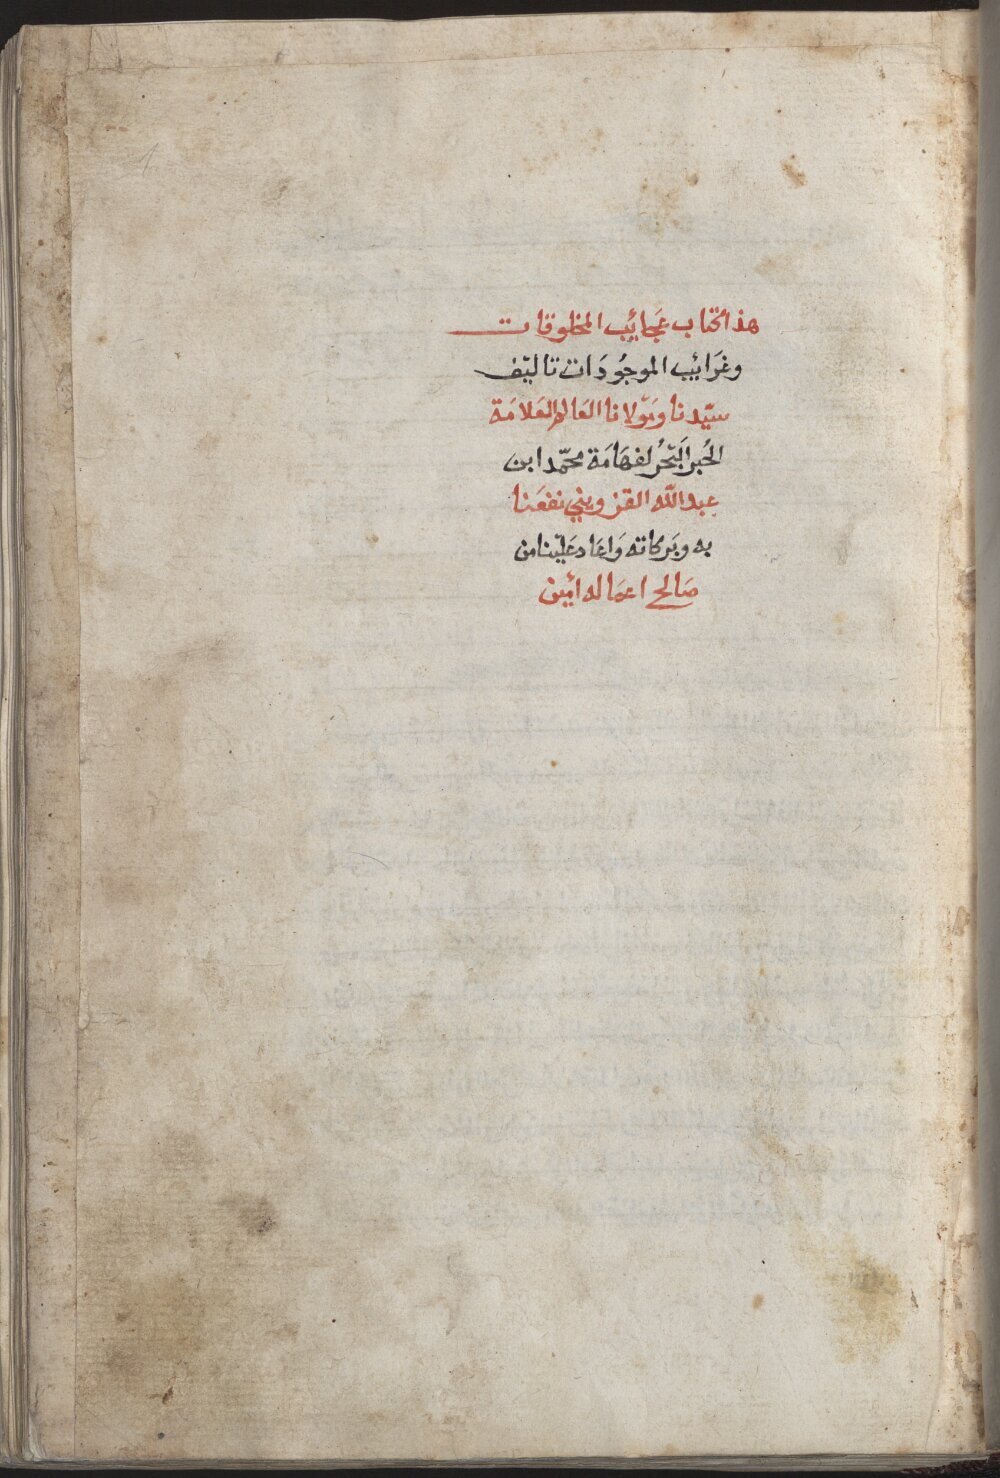 هذا كتاب عَجائب المخلوقات
وغَرَائب الموجُودَات تاليّف
سيّدنا ومَوْلانا العَالم العَلامَة
الحُبر البَحْرُ لفهَامَة محمّد ابن
عبد اللّه القزويني نفعَنا
به وبَركاته وَاعَاد عَليْنا من
صَالح اعمَاله اٰمين